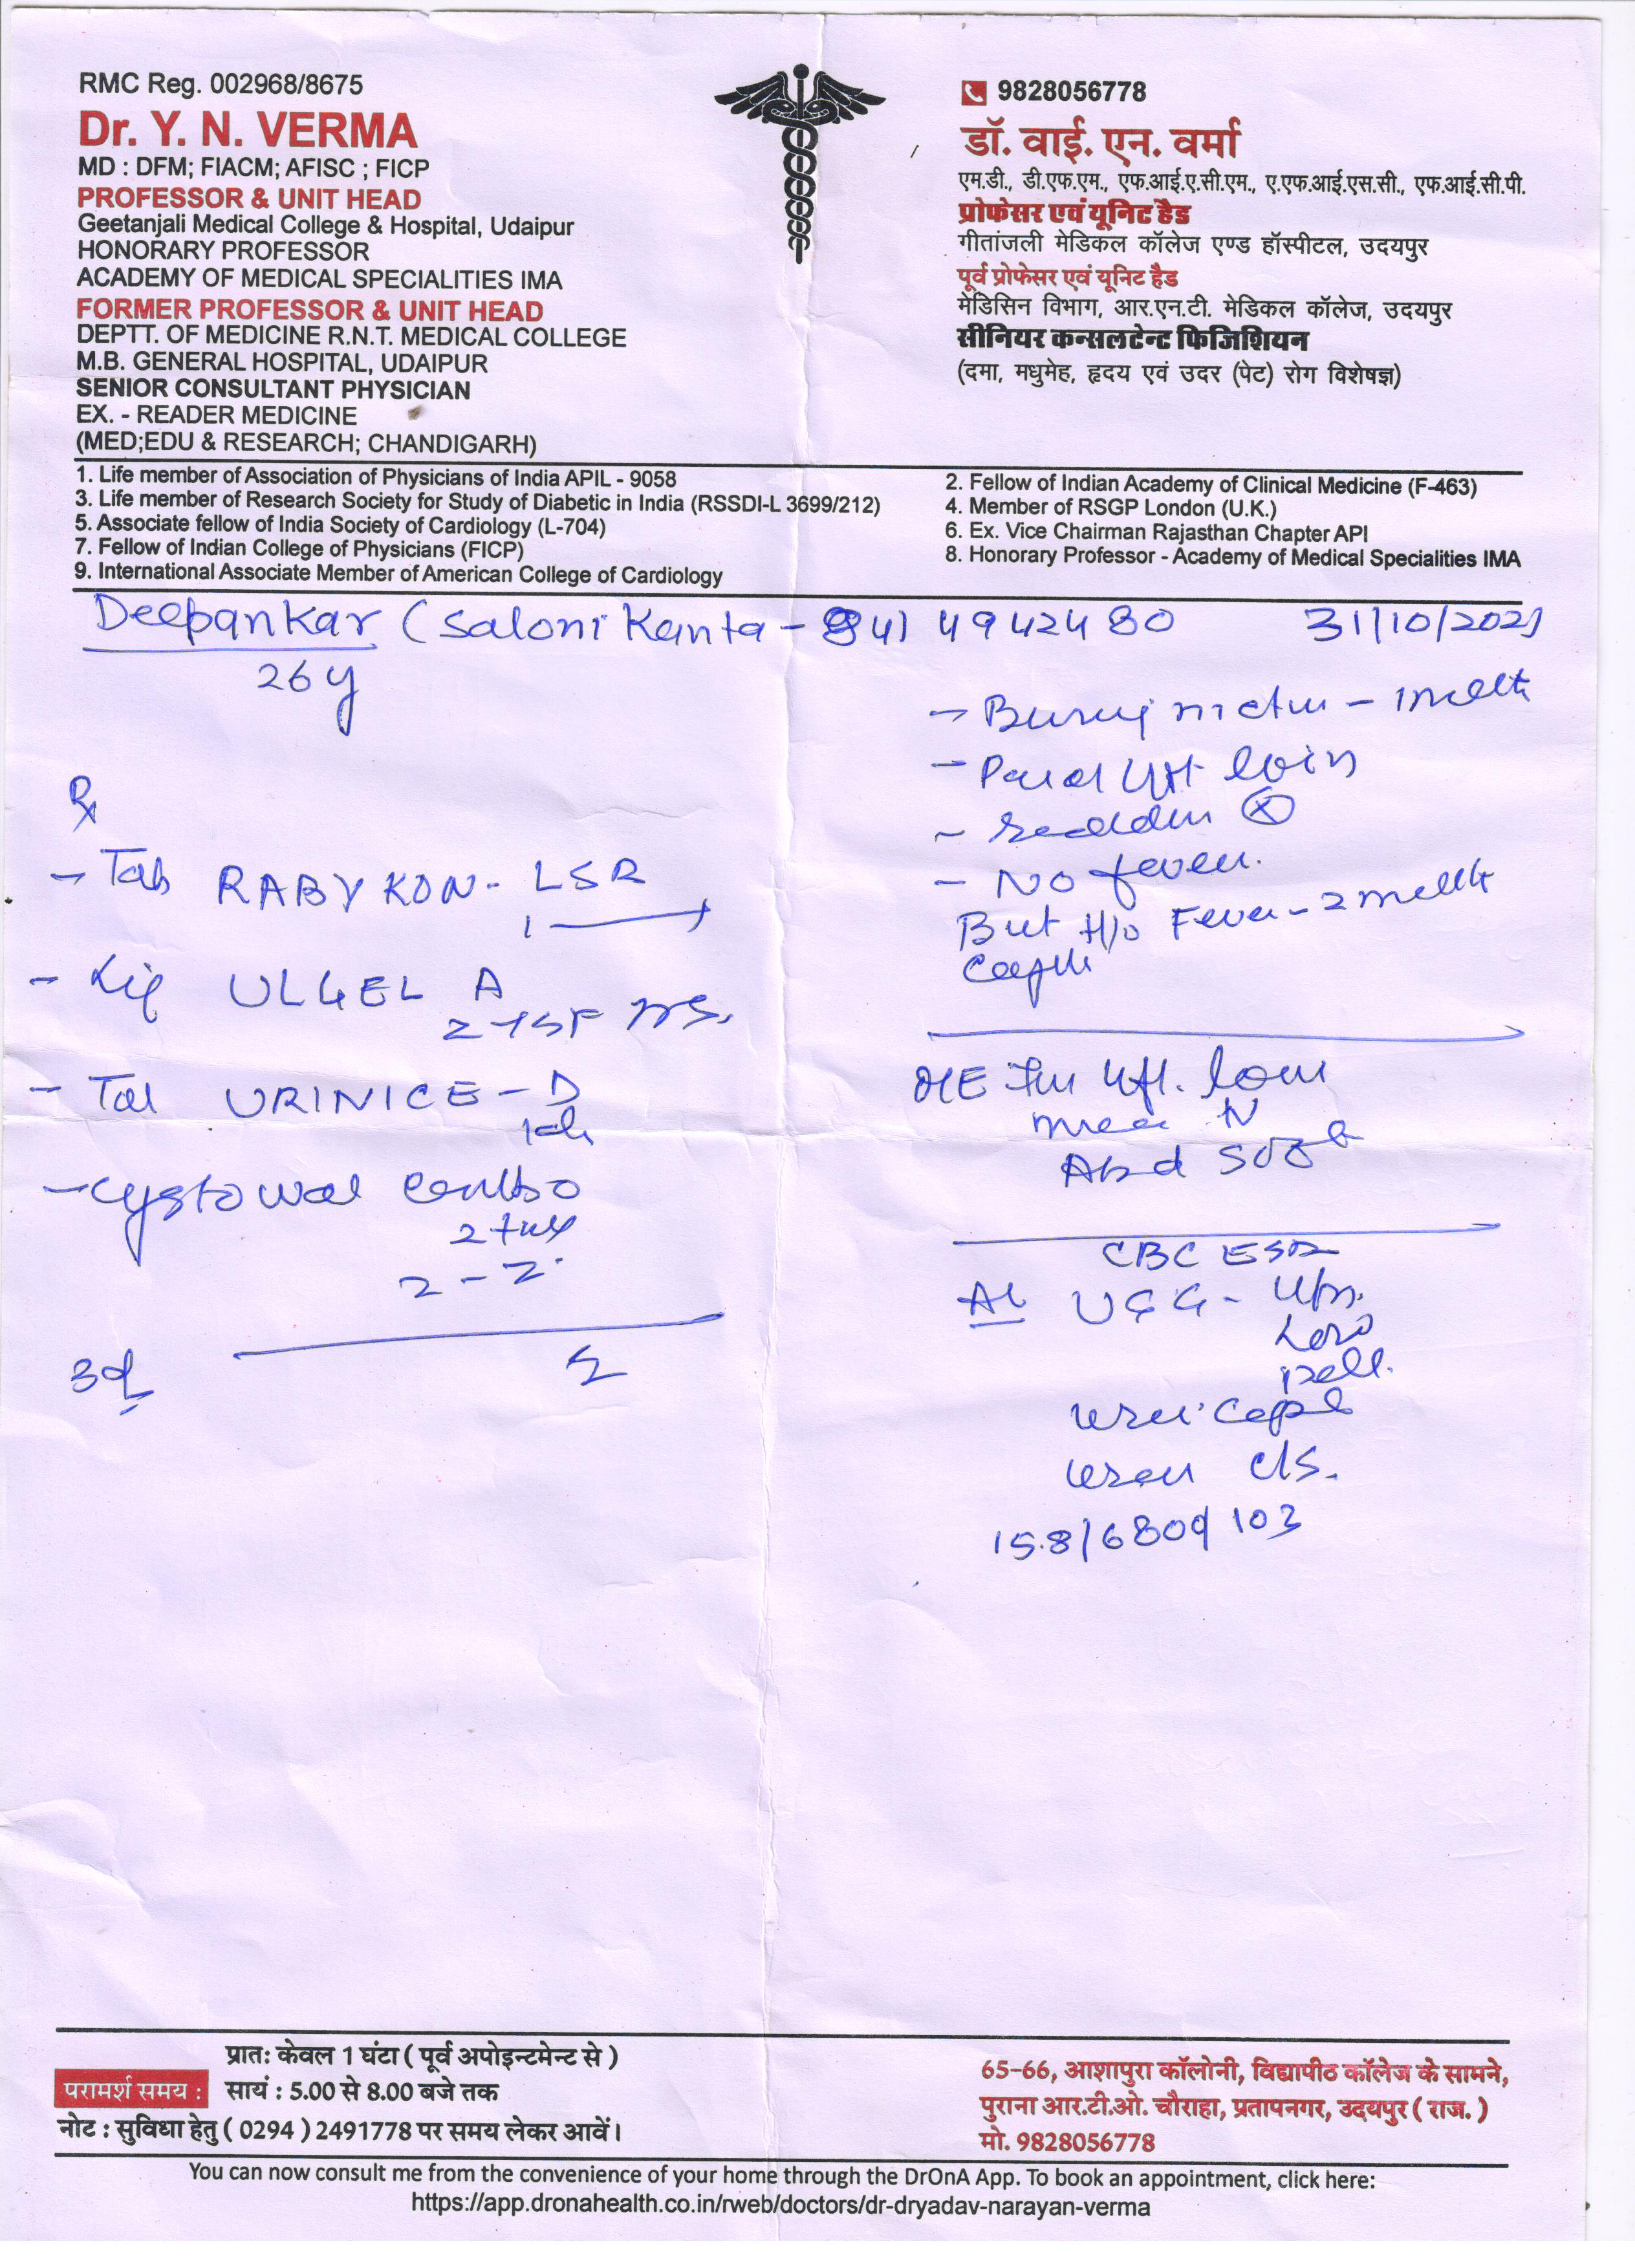 RMC Reg. 002968/8675
Dr. Y. N. VERMA
MD : DFM; FIACM; AFISC ; FICP
PROFESSOR & UNIT HEAD
Geetanjali Medical College & Hospital, Udaipur
HONORARY PROFESSOR
ACADEMY OF MEDICAL SPECIALITIES IMA
FORMER PROFESSOR & UNIT HEAD
DEPTT. OF MEDICINE R.N.T. MEDICAL COLLEGE
M.B. GENERAL HOSPITAL, UDAIPUR
SENIOR CONSULTANT PHYSICIAN
EX. - READER MEDICINE
(MED;EDU & RESEARCH; CHANDIGARH)
9828056778
डॉ. वाई. एन. वर्मा
एम.डी., डी.एफ.एम., एफ.आई.ए.सी.एम., ए.एफ.आई.एस.सी., एफ.आई.सी.पी.
प्रोफेसर एवं यूनिट हैड
गीतांजली मेडिकल कॉलेज एण्ड हॉस्पीटल, उदयपुर
पूर्व प्रोफेसर एवं यूनिट हैड
मेडिसिन विभाग, आर.एन.टी. मेडिकल कॉलेज, उदयपुर
सीनियर कन्सलटेन्ट फिजिशियन
(दमा, मधुमेह, हृदय एवं उदर (पेट) रोग विशेषज्ञ)
1. Life member of Association of Physicians of India APIL - 9058
2. Fellow of Indian Academy of Clinical Medicine (F-463)
3. Life member of Research Society for Study of Diabetic in India (RSSDI-L 3699/212)
4. Member of RSGP London (U.K.)
5. Associate fellow of India Society of Cardiology (L-704)
6. Ex. Vice Chairman Rajasthan Chapter API
7. Fellow of Indian College of Physicians (FICP)
8. Honorary Professor - Academy of Medical Specialities IMA
9. International Associate Member of American College of Cardiology
Deepankar (Saloni Kanta - 9414942480 31/10/2021
26 y
℞
- Tab RABYKON - LSR
1
- Liq ULGEL A
2 TSF
- Tab URINICE - D
- Cystowal combo
2
2 - 2
3d
- No fever.
But H/o Fever - 2
Abd soft
CBC ESR
USG -
C/S.
15.8/6800/103
प्रातः केवल 1 घंटा ( पूर्व अपोइन्टमेन्ट से )
परामर्श समय : सायं : 5.00 से 8.00 बजे तक
नोट : सुविधा हेतु ( 0294 ) 2491778 पर समय लेकर आवें।
65-66, आशापुरा कॉलोनी, विद्यापीठ कॉलेज के सामने,
पुराना आर.टी.ओ. चौराहा, प्रतापनगर, उदयपुर ( राज. )
मो. 9828056778
You can now consult me from the convenience of your home through the DrOnA App. To book an appointment, click here:
https://app.dronahealth.co.in/rweb/doctors/dr-dryadav-narayan-verma